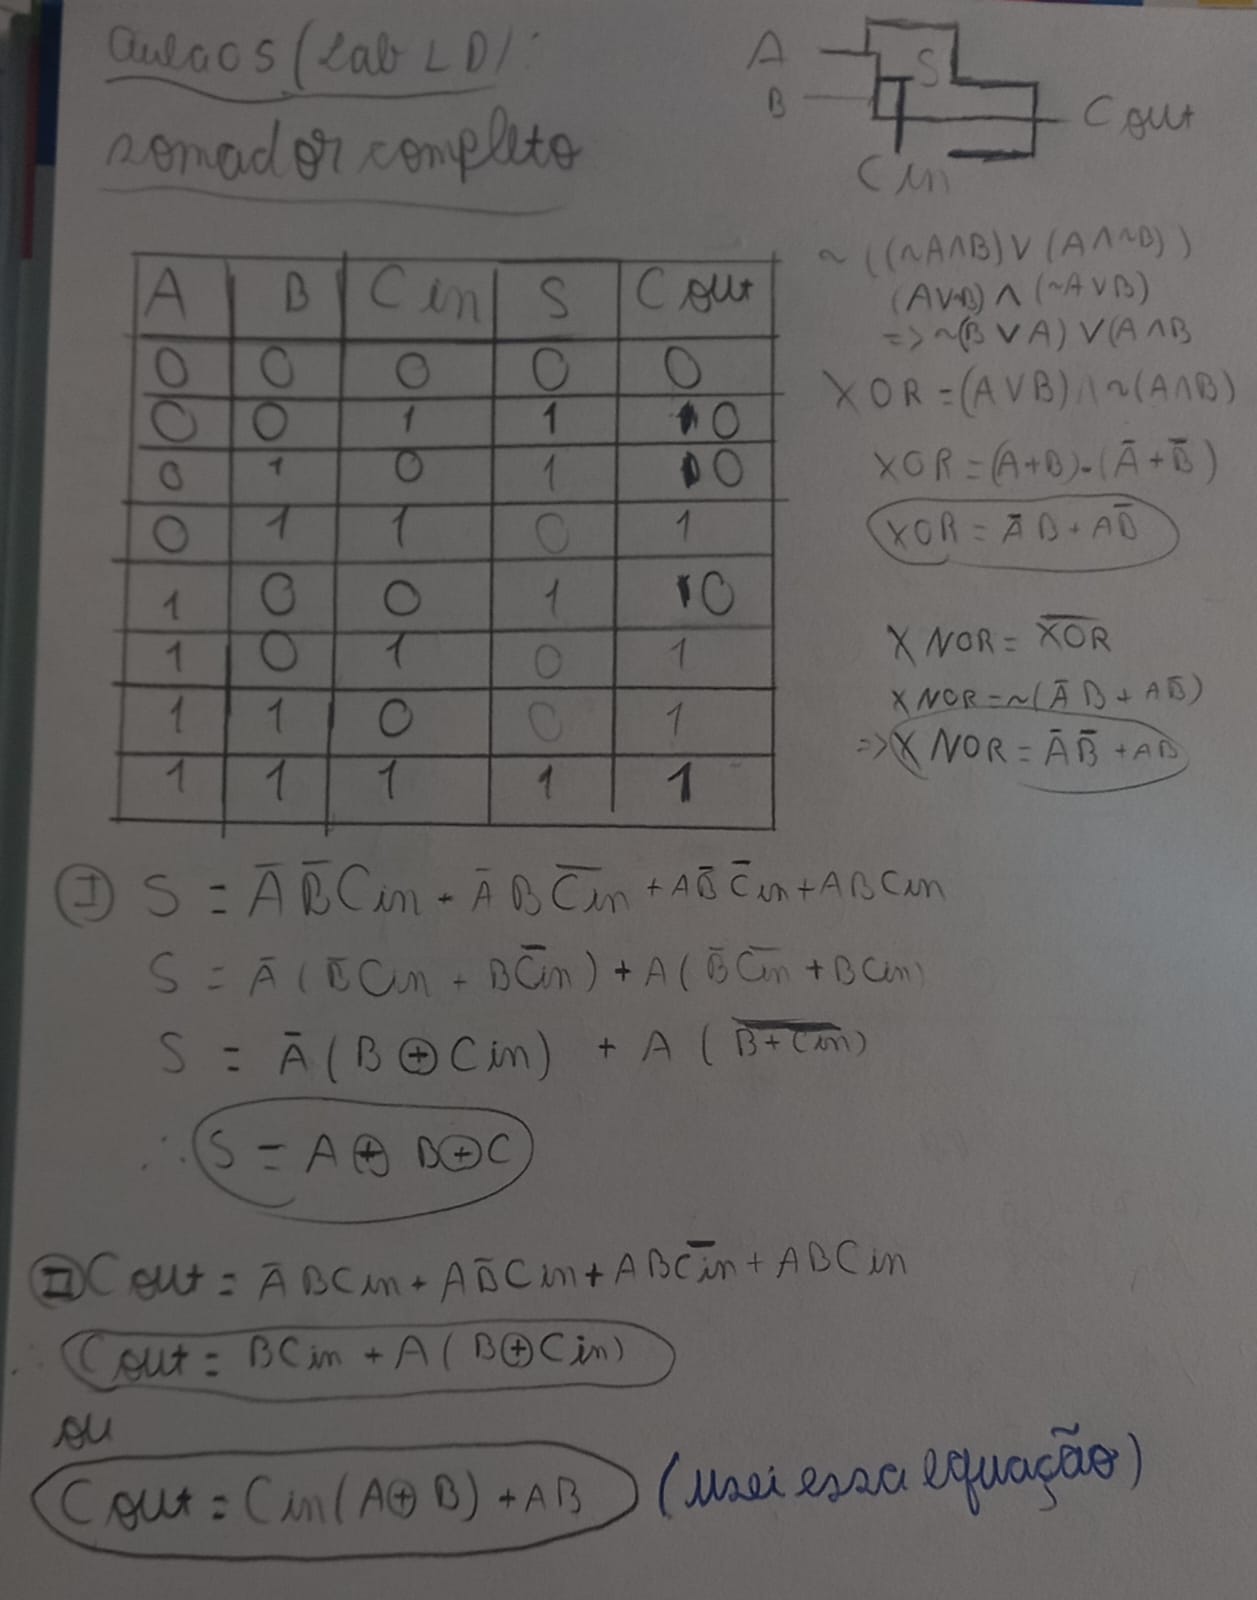 aula 05 (Lab LD):
somador completo
A
B
S
C in
C out
A B C in S C out
0 0 0 0 0
0 0 1 1 0
0 1 0 1 0
0 1 1 0 1
1 0 0 1 0
1 0 1 0 1
1 1 0 0 1
1 1 1 1 1
~((~A∧B)∨(A∧~B))
(A∨~B)∧(~A∨B)
=> ~(B∨A)∨(A∧B
XOR = (A∨B)∧~(A∧B)
XOR = (A+B)·(A̅+B̅)
XOR = A̅B+AB̅
XNOR = X̅O̅R̅
XNOR = ~(A̅B+AB̅)
=> XNOR = A̅B̅+AB
I S = A̅B̅Cin + A̅BC̅i̅n̅ + AB̅C̅in + ABCin
S = A̅(B̅Cin + BC̅i̅n̅) + A(B̅C̅i̅n̅ + BCin)
S = A̅(B⊕Cin) + A(B̅+̅C̅i̅n̅)
∴ S = A⊕B⊕C
II Cout = A̅BCin + AB̅Cin + ABC̅i̅n̅ + ABCin
∴ Cout = BCin + A(B⊕Cin)
ou
Cout = Cin(A⊕B) + AB (usei essa equação)